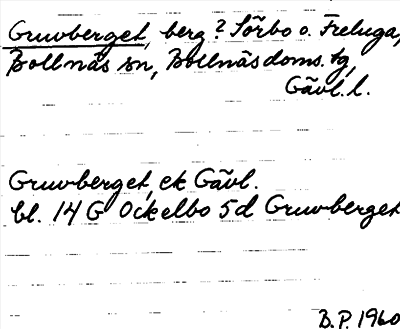 Gruvberget, berg? Sörbo o. Freluga,
Bollnäs sn, Bollnäs doms. tg,
Gävl. l.
Gruvberget, ek Gävl.
bl. 14 G Ockelbo 5d Gruvberget
B.P. 1960